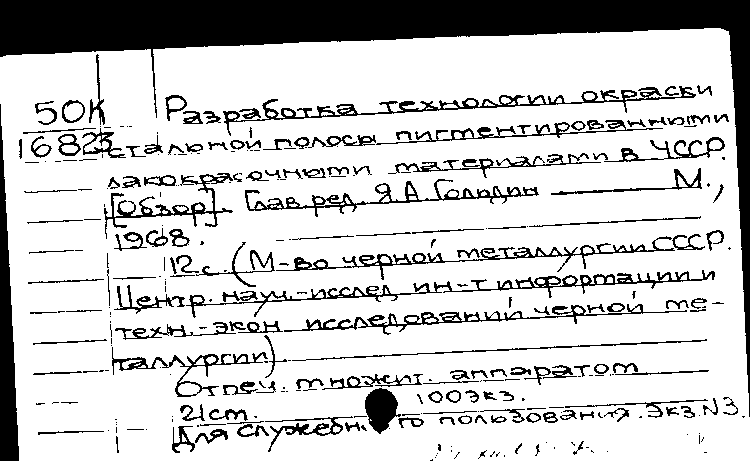 50К Разработка технологии окраски
16823 стальной полосы пигментированными
лакокрасочными материалами в ЧССР.
[Обзор]. Глав. ред. Я.А. Гольдин — М.,
1968.
12 с. (М-во черной металлургии СССР.
Центр. науч.-исслед. ин-т информации и
техн.-экон. исследований черной ме-
таллургии).
Отпеч. множит. аппаратом
21 см. 100 экз.
Для служебного пользования. Экз. N3.